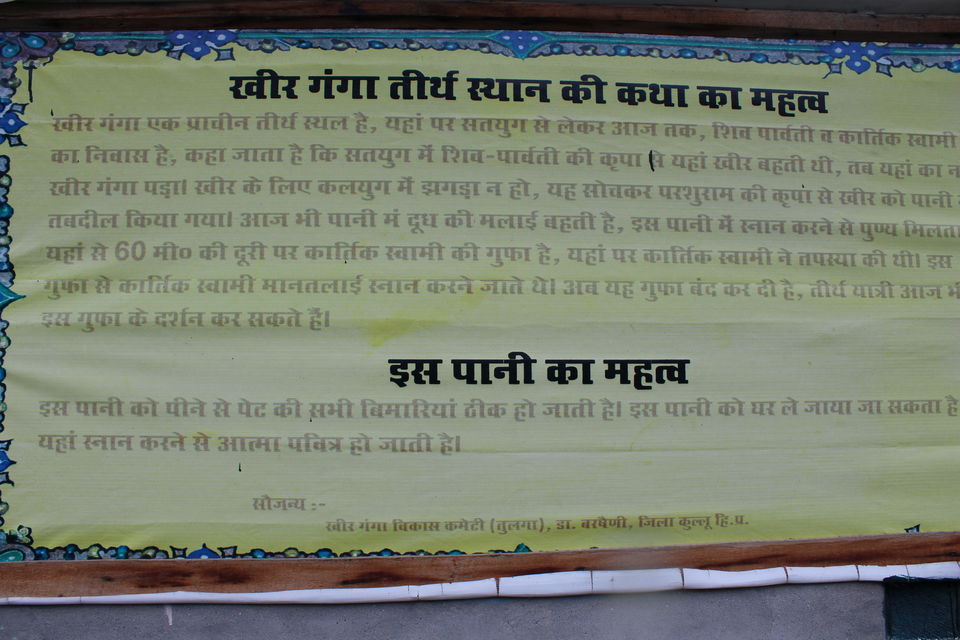 खीर गंगा तीर्थ स्थान की कथा का महत्व
खीर गंगा एक प्राचीन तीर्थ स्थल है, यहां पर सतयुग से लेकर आज तक, शिव पार्वती व कार्तिक स्वामी
का निवास है, कहा जाता है कि सतयुग में शिव-पार्वती की कृपा से यहां खीर बहती थी, तब यहां का
खीर गंगा पड़ा। खीर के लिए कलयुग में झगड़ा न हो, यह सोचकर परशुराम की कृपा से खीर को पानी
तबदील किया गया। आज भी पानी मं दूध की मलाई बहती है, इस पानी में स्नान करने से पुण्य
यहां से 60 मी० की दूरी पर कार्तिक स्वामी की गुफा है, यहां पर कार्तिक स्वामी ने तपस्या की थी। इस
गुफा से कार्तिक स्वामी मानतलाई स्नान करने जाते थे। अब यह गुफा बंद कर दी है, तीर्थ यात्री आज
इस गुफा के दर्शन कर सकते हैं।
इस पानी का महत्व
इस पानी को पीने से पेट की सभी बिमारियां ठीक हो जाती है। इस पानी को घर ले जाया जा सकता है
यहां स्नान करने से आत्मा पवित्र हो जाती है।
सौजन्य :-
खीर गंगा विकास कमेटी (तुलगा), डा. बरषैणी, जिला कुल्लू हि.प्र.